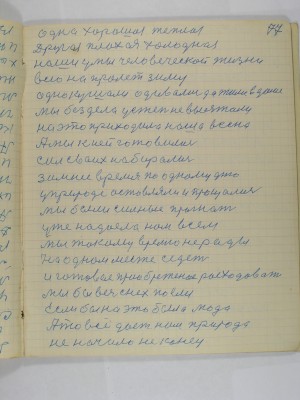 77
одна хорошая теплая
другая плохая холодная
нашиуты человеческой жизни
все на пролет зиму
однокушали одевали да жили в доме
мы без дела усеж не выезжали
на это приходила наша весна
А мы к ней готовелися
сил своих набералися
зимнее время по одному это
у природе оставляли и прощалися
мы были сильные прогнат
уже надоела нам всем
мы такому время не рады
На одном месте седет
и готовые приобретное расходоват
мы бы вечных
Если бы на это была мода
А то всё дает нам природа
не начало не конец